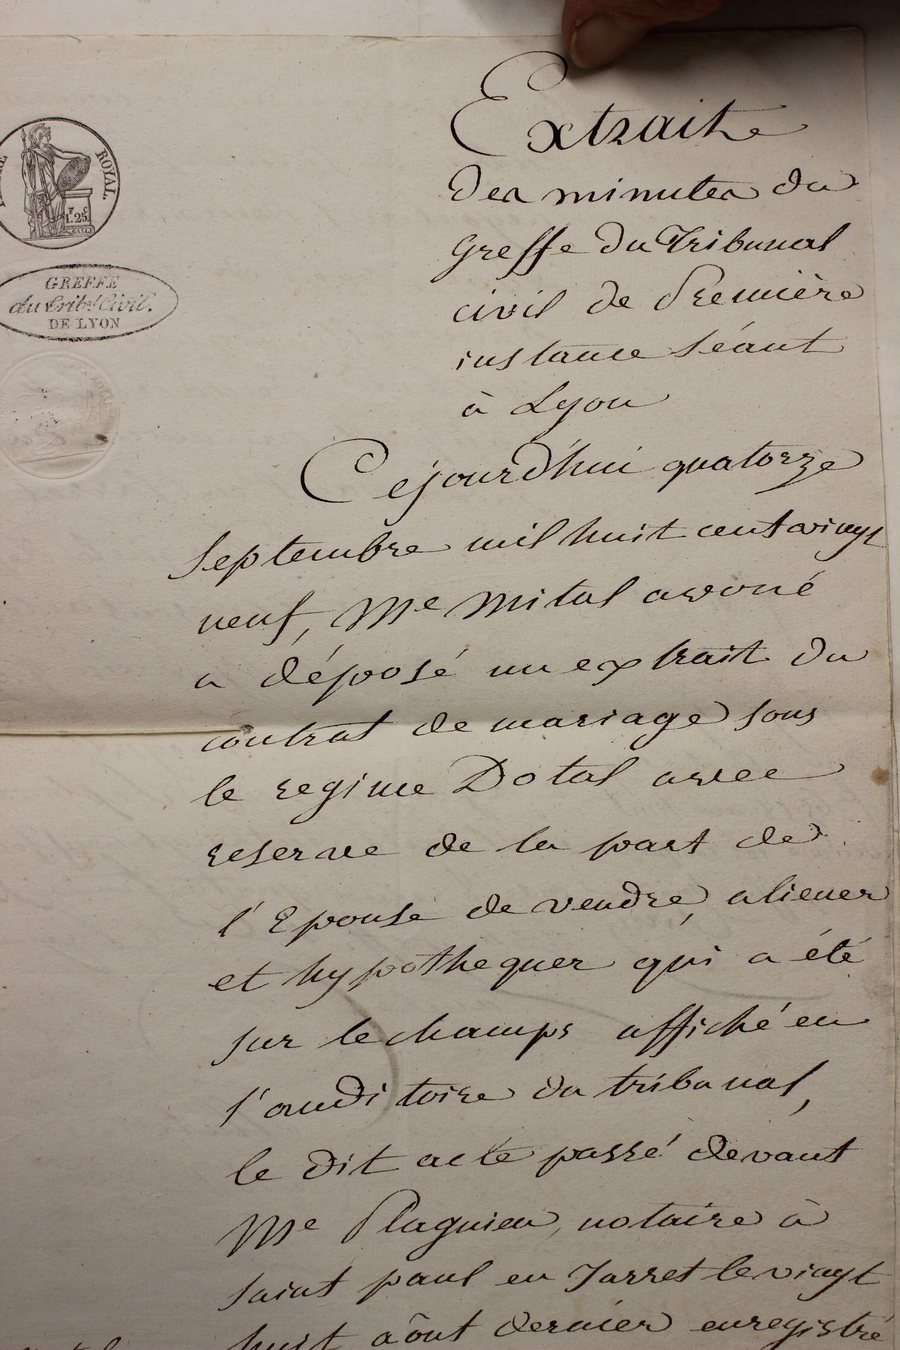 ROYAL.
1.25
GREFFE
du Trib.l Civil.
DE LYON
Extrait
des minutes du
Greffe du Tribunal
civil de Première
instance séant
à Lyon
Cejourd'hui quatorze
Septembre mil huit cent vingt
neuf, Me Mital avoué
a déposé un extrait du
contrat de mariage sous
le regime Dotal avec
reserve de la part de
l'Epouse de vendre, aliener
et hypothequer qui a été
sur le champs affiché en
l'auditoire du tribunal,
le dit acte passé devant
Me Plagnieu, notaire à
saint paul en Jarret le vingt
huit aôut dernier enregistré